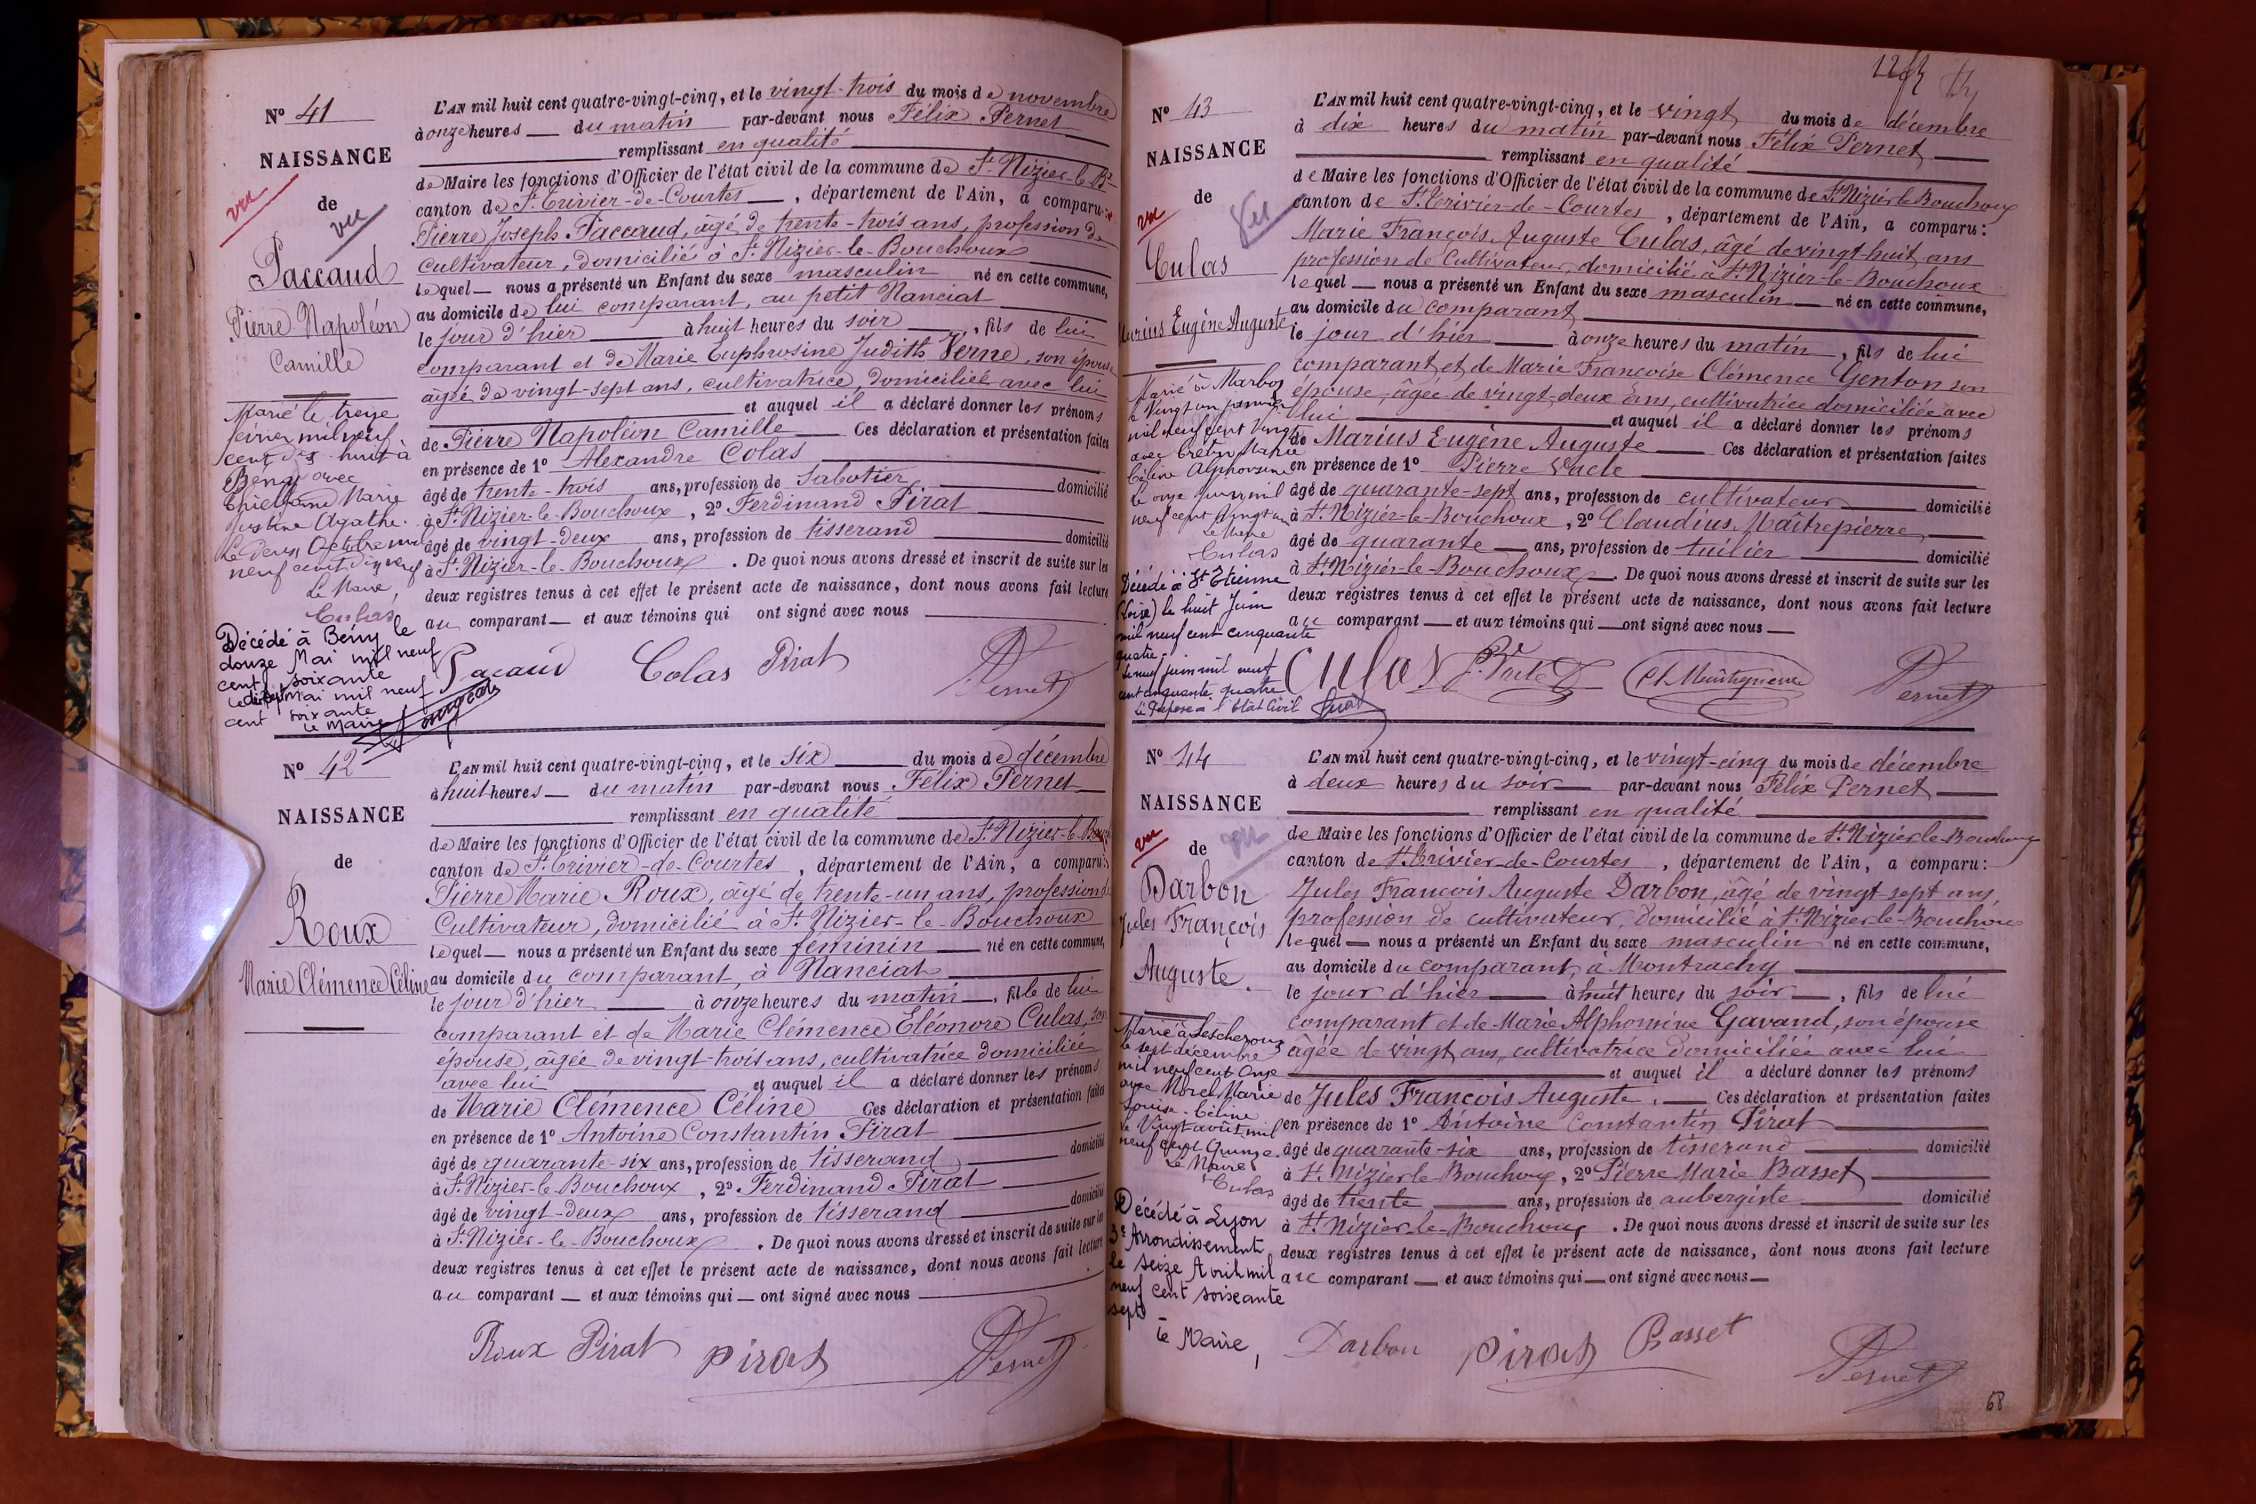 Nº 41
NAISSANCE
de
vu
vu
Paccaud
Pierre Napoléon
Camille
Marié le treize
février mil neuf
cent dix-huit à
Beny avec
Marie
Justine Agathe.
Le deux Octobre mil
neuf cent dix neuf
Le Maire,
Culas
Décédé à Beny le
douze Mai mil neuf
cent soixante
Mai mil neuf
cent soixante
Le Maire
L'AN mil huit cent quatre-vingt-cinq, et le vingt-trois du mois de novembre
à onze heures du matin par-devant nous Félix Pernet
remplissant en qualité
de Maire les fonctions d'Officier de l'état civil de la commune de St Nizier-le-Bx
canton de St Trivier-de-Courtes, département de l'Ain, a comparu:
Pierre Joseph Paccaud, âgé de trente-trois ans, profession de
Cultivateur, domicilié à St Nizier-le-Bouchoux
lequel nous a présenté un Enfant du sexe masculin né en cette commune,
au domicile de lui comparant, au petit Nanciat
le jour d'hier à huit heures du soir, fils de lui
comparant et de Marie Euphrosine Judith Verne, son épouse
âgée de vingt-sept ans, cultivatrice, domiciliée avec lui
et auquel il a déclaré donner les prénoms
de Pierre Napoléon Camille Ces déclaration et présentation faites
en présence de 1º Alexandre Colas
âgé de trente-trois ans, profession de Sabotier domicilié
à St Nizier-le-Bouchoux, 2º Ferdinand Pirat
âgé de vingt-deux ans, profession de tisserand domicilié
à St Nizier-le-Bouchoux. De quoi nous avons dressé et inscrit de suite sur les
deux registres tenus à cet effet le présent acte de naissance, dont nous avons fait lecture
au comparant et aux témoins qui ont signé avec nous
Pacaud Colas Pirat Pernet
Nº 42
NAISSANCE
de
Roux
Marie Clémence Céline
L'AN mil huit cent quatre-vingt-cinq, et le six du mois de décembre
à huit heures du matin par-devant nous Félix Pernet
remplissant en qualité
de Maire les fonctions d'Officier de l'état civil de la commune de St Nizier-le-Boux
canton de St Trivier-de-Courtes, département de l'Ain, a comparu:
Pierre Marie Roux, âgé de trente-un ans, profession de
Cultivateur, domicilié à St Nizier-le-Bouchoux
lequel nous a présenté un Enfant du sexe féminin né en cette commune,
au domicile du comparant, à Nanciat
le jour d'hier à onze heures du matin, fille de lui
comparant et de Marie Clémence Eléonore Culas, son
épouse, âgée de vingt-trois ans, cultivatrice domiciliée
avec lui et auquel il a déclaré donner les prénoms
de Marie Clémence Céline Ces déclaration et présentation faites
en présence de 1º Antoine Constantin Pirat
âgé de quarante-six ans, profession de tisserand domicilié
à St Nizier-le-Bouchoux, 2º Ferdinand Pirat
âgé de vingt-deux ans, profession de tisserand domicilié
à St Nizier-le-Bouchoux. De quoi nous avons dressé et inscrit de suite sur les
deux registres tenus à cet effet le présent acte de naissance, dont nous avons fait lecture
au comparant et aux témoins qui ont signé avec nous
Roux Pirat Pirat Pernet
Nº 43
NAISSANCE
de
vu
vu
Culas
Marius Eugène Auguste
Marié à Marboz
le Vingt un janvier
mil neuf cent Vingt
avec Marie
Céline Alphonsine
Le onze juin mil
neuf cent vingt un
Le Maire
Culas
Décédé à St Etienne
(Loire) le huit Juin
mil neuf cent cinquante
quatre.
Le neuf juin mil neuf
cent cinquante quatre
l'Etat Civil
L'AN mil huit cent quatre-vingt-cinq, et le vingt du mois de décembre
à dix heures du matin par-devant nous Félix Pernet
remplissant en qualité
de Maire les fonctions d'Officier de l'état civil de la commune de St Nizier le Bouchoux
canton de St Trivier-de-Courtes, département de l'Ain, a comparu:
Marie François Auguste Culas, âgé de vingt-huit ans
profession de Cultivateur, domicilié à St Nizier-le-Bouchoux
lequel nous a présenté un Enfant du sexe masculin né en cette commune,
au domicile du comparant
le jour d'hier à onze heures du matin, fils de lui
comparant et de Marie Françoise Clémence Genton son
épouse, âgée de vingt-deux ans, cultivatrice domiciliée avec
lui et auquel il a déclaré donner les prénoms
de Marius Eugène Auguste Ces déclaration et présentation faites
en présence de 1º Pierre
âgé de quarante-sept ans, profession de cultivateur domicilié
à St Nizier-le-Bouchoux, 2º Claudius Maîtrepierre
âgé de quarante ans, profession de tuilier domicilié
à St Nizier-le-Bouchoux. De quoi nous avons dressé et inscrit de suite sur les
deux registres tenus à cet effet le présent acte de naissance, dont nous avons fait lecture
au comparant et aux témoins qui ont signé avec nous
Culas Cl Maîtrepierre Pernet
Nº 44
NAISSANCE
de
vu
vu
Darbon
Jules François
Auguste.
Marié à Lescheroux
le sept décembre
mil neuf cent Onze
avec Morel Marie
Louise-Céline
Le Vingt août mil
neuf cent Quinze.
Le Maire
Culas
Décédé à Lyon
3e Arrondissement
le seize Avril mil
neuf cent soixante
sept
Le Maire,
L'AN mil huit cent quatre-vingt-cinq, et le vingt-cinq du mois de décembre
à deux heures du soir par-devant nous Félix Pernet
remplissant en qualité
de Maire les fonctions d'Officier de l'état civil de la commune de St Nizier le Bouchoux
canton de St Trivier-de-Courtes, département de l'Ain, a comparu:
Jules François Auguste Darbon, âgé de vingt-sept ans,
profession de cultivateur, domicilié à St Nizier-le-Bouchoux
lequel nous a présenté un Enfant du sexe masculin né en cette commune,
au domicile du comparant, à Montrachy
le jour d'hier à huit heures du soir, fils de lui
comparant et de Marie Alphonsine Gavand, son épouse
âgée de vingt ans, cultivatrice domiciliée avec lui
et auquel il a déclaré donner les prénoms
de Jules François Auguste. Ces déclaration et présentation faites
en présence de 1º Antoine Constantin Pirat
âgé de quarante-six ans, profession de tisserand domicilié
à St Nizier le Bouchoux, 2º Pierre Marie Basset
âgé de trente ans, profession de aubergiste domicilié
à St Nizier-le-Bouchoux. De quoi nous avons dressé et inscrit de suite sur les
deux registres tenus à cet effet le présent acte de naissance, dont nous avons fait lecture
au comparant et aux témoins qui ont signé avec nous
Darbon Pirat Basset Pernet
68